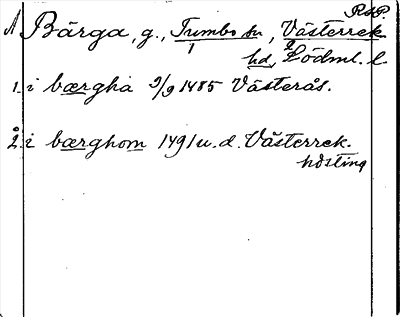 RAP.
Bärga, g., Tumbo sn, Västerrek
1 2
hd, Södml. l.
1. i bærgha 9/9 1485 Västerås.
2. i bærghom 1491 u. d. Västerrek.
hdsting